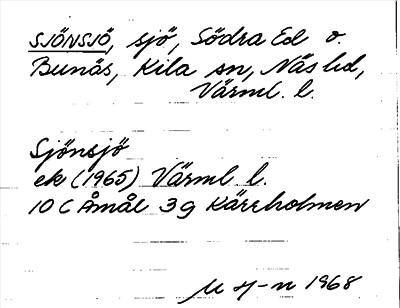 SJÖNSJÖ, sjö, Södra Ed o.
Bunäs, Kila sn, Näs hd,
Värml. l.
Sjönsjö
ek (1965) Värml l.
10 C Åmål 3 g Kärrholmen
1968